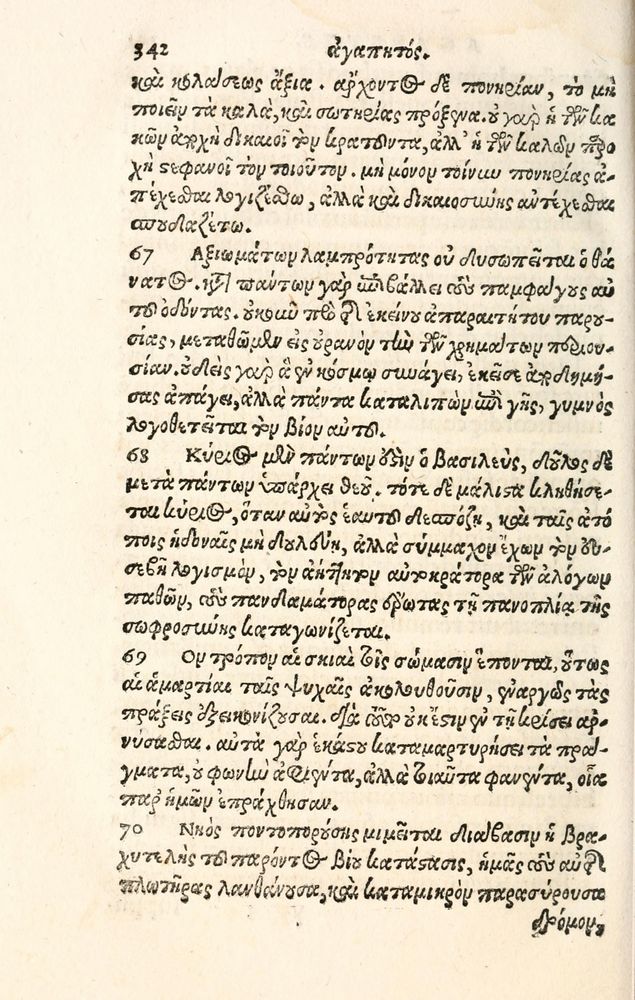 342 ἀγαπητός.
καὶ κολάσεως ἄξια. ἄρχοντος δὲ πονηρίαν, τὸ μὴ
ποιεῖν τὰ καλὰ, καὶ σωτηρίας πρόξενα. οὐ γὰρ ἡ τῶν κα
κῶν ἀποχὴ δικαιοῖ τὸν κρατοῦντα, ἀλλ' ἡ τῶν καλῶν παρο
χὴ στεφανοῖ τὸν τοιοῦτον. μὴ μόνον τοίνυν πονηρίας ἀ-
πέχεσθαι λογιζέσθω, ἀλλὰ καὶ δικαιοσύνης ἀντέχεσθαι
σπουδαζέτω.
67 Ἀξιωμάτων λαμπρότητας οὐ δυσωπεῖται ὁ θά
νατος. κατὰ πάντων γὰρ ἐπιβάλλει τοὺς παμφάγους αὐ
τοῦ ὀδόντας. οὐκοῦν πρὸ τῆς ἐκείνου ἀπαραιτήτου παρου
σίας, μεταθῶμεν εἰς οὐρανὸν τὴν τῶν χρημάτων περιου-
σίαν. οὐδεὶς γὰρ ἃ ἐν κόσμῳ συνάγει, ἐκεῖσε ἀποδημή-
σας ἀπάγει, ἀλλὰ πάντα καταλιπὼν ἐπὶ γῆς, γυμνὸς
λογοθετεῖται τὸν βίον αὐτοῦ.
68 Κύριος μὲν πάντων ἐστὶν ὁ Βασιλεὺς, δοῦλος δὲ
μετὰ πάντων ὑπάρχει θεοῦ. τότε δὲ μάλιστα κληθήσε-
ται κύριος, ὅταν αὐτὸς ἑαυτοῦ δεσπόζῃ, καὶ ταῖς ἀτό
ποις ἡδοναῖς μὴ δουλεύῃ, ἀλλὰ σύμμαχον ἔχων τὸν εὐ-
σεβῆ λογισμὸν, τὸν ἀήττητον αὐτοκράτορα τῶν ἀλόγων
παθῶν, τοὺς πανδαμάτορας ἔρωτας τῇ πανοπλίᾳ τῆς
σωφροσύνης καταγωνίζεται.
69 Ὃν τρόπον αἱ σκιαὶ τοῖς σώμασιν ἕπονται, οὕτως
αἱ ἁμαρτίαι ταῖς ψυχαῖς ἀκολουθοῦσιν, ἐναργῶς τὰς
πράξεις ἐξεικονίζουσαι. διὰ τοῦτο οὐκ ἔστιν ἐν τῇ κρίσει ἀρ-
νήσασθαι. αὐτὰ γὰρ ἑκάστου καταμαρτυρήσει τὰ πρά-
γματα, οὐ φωνὴν ἀφιέντα, ἀλλὰ τοιαῦτα φανέντα, οἷα
παρ' ἡμῶν ἐπράχθησαν.
70 Νηὸς ποντοπορούσης μιμεῖται διάβασιν ἡ βρα-
χυτελὴς τοῦ παρόντος βίου κατάστασις, ἡμᾶς τοὺς αὐτῆς
πλωτῆρας λανθάνουσα, καὶ καταμικρὸν παρασύρουσα
δρόμον,